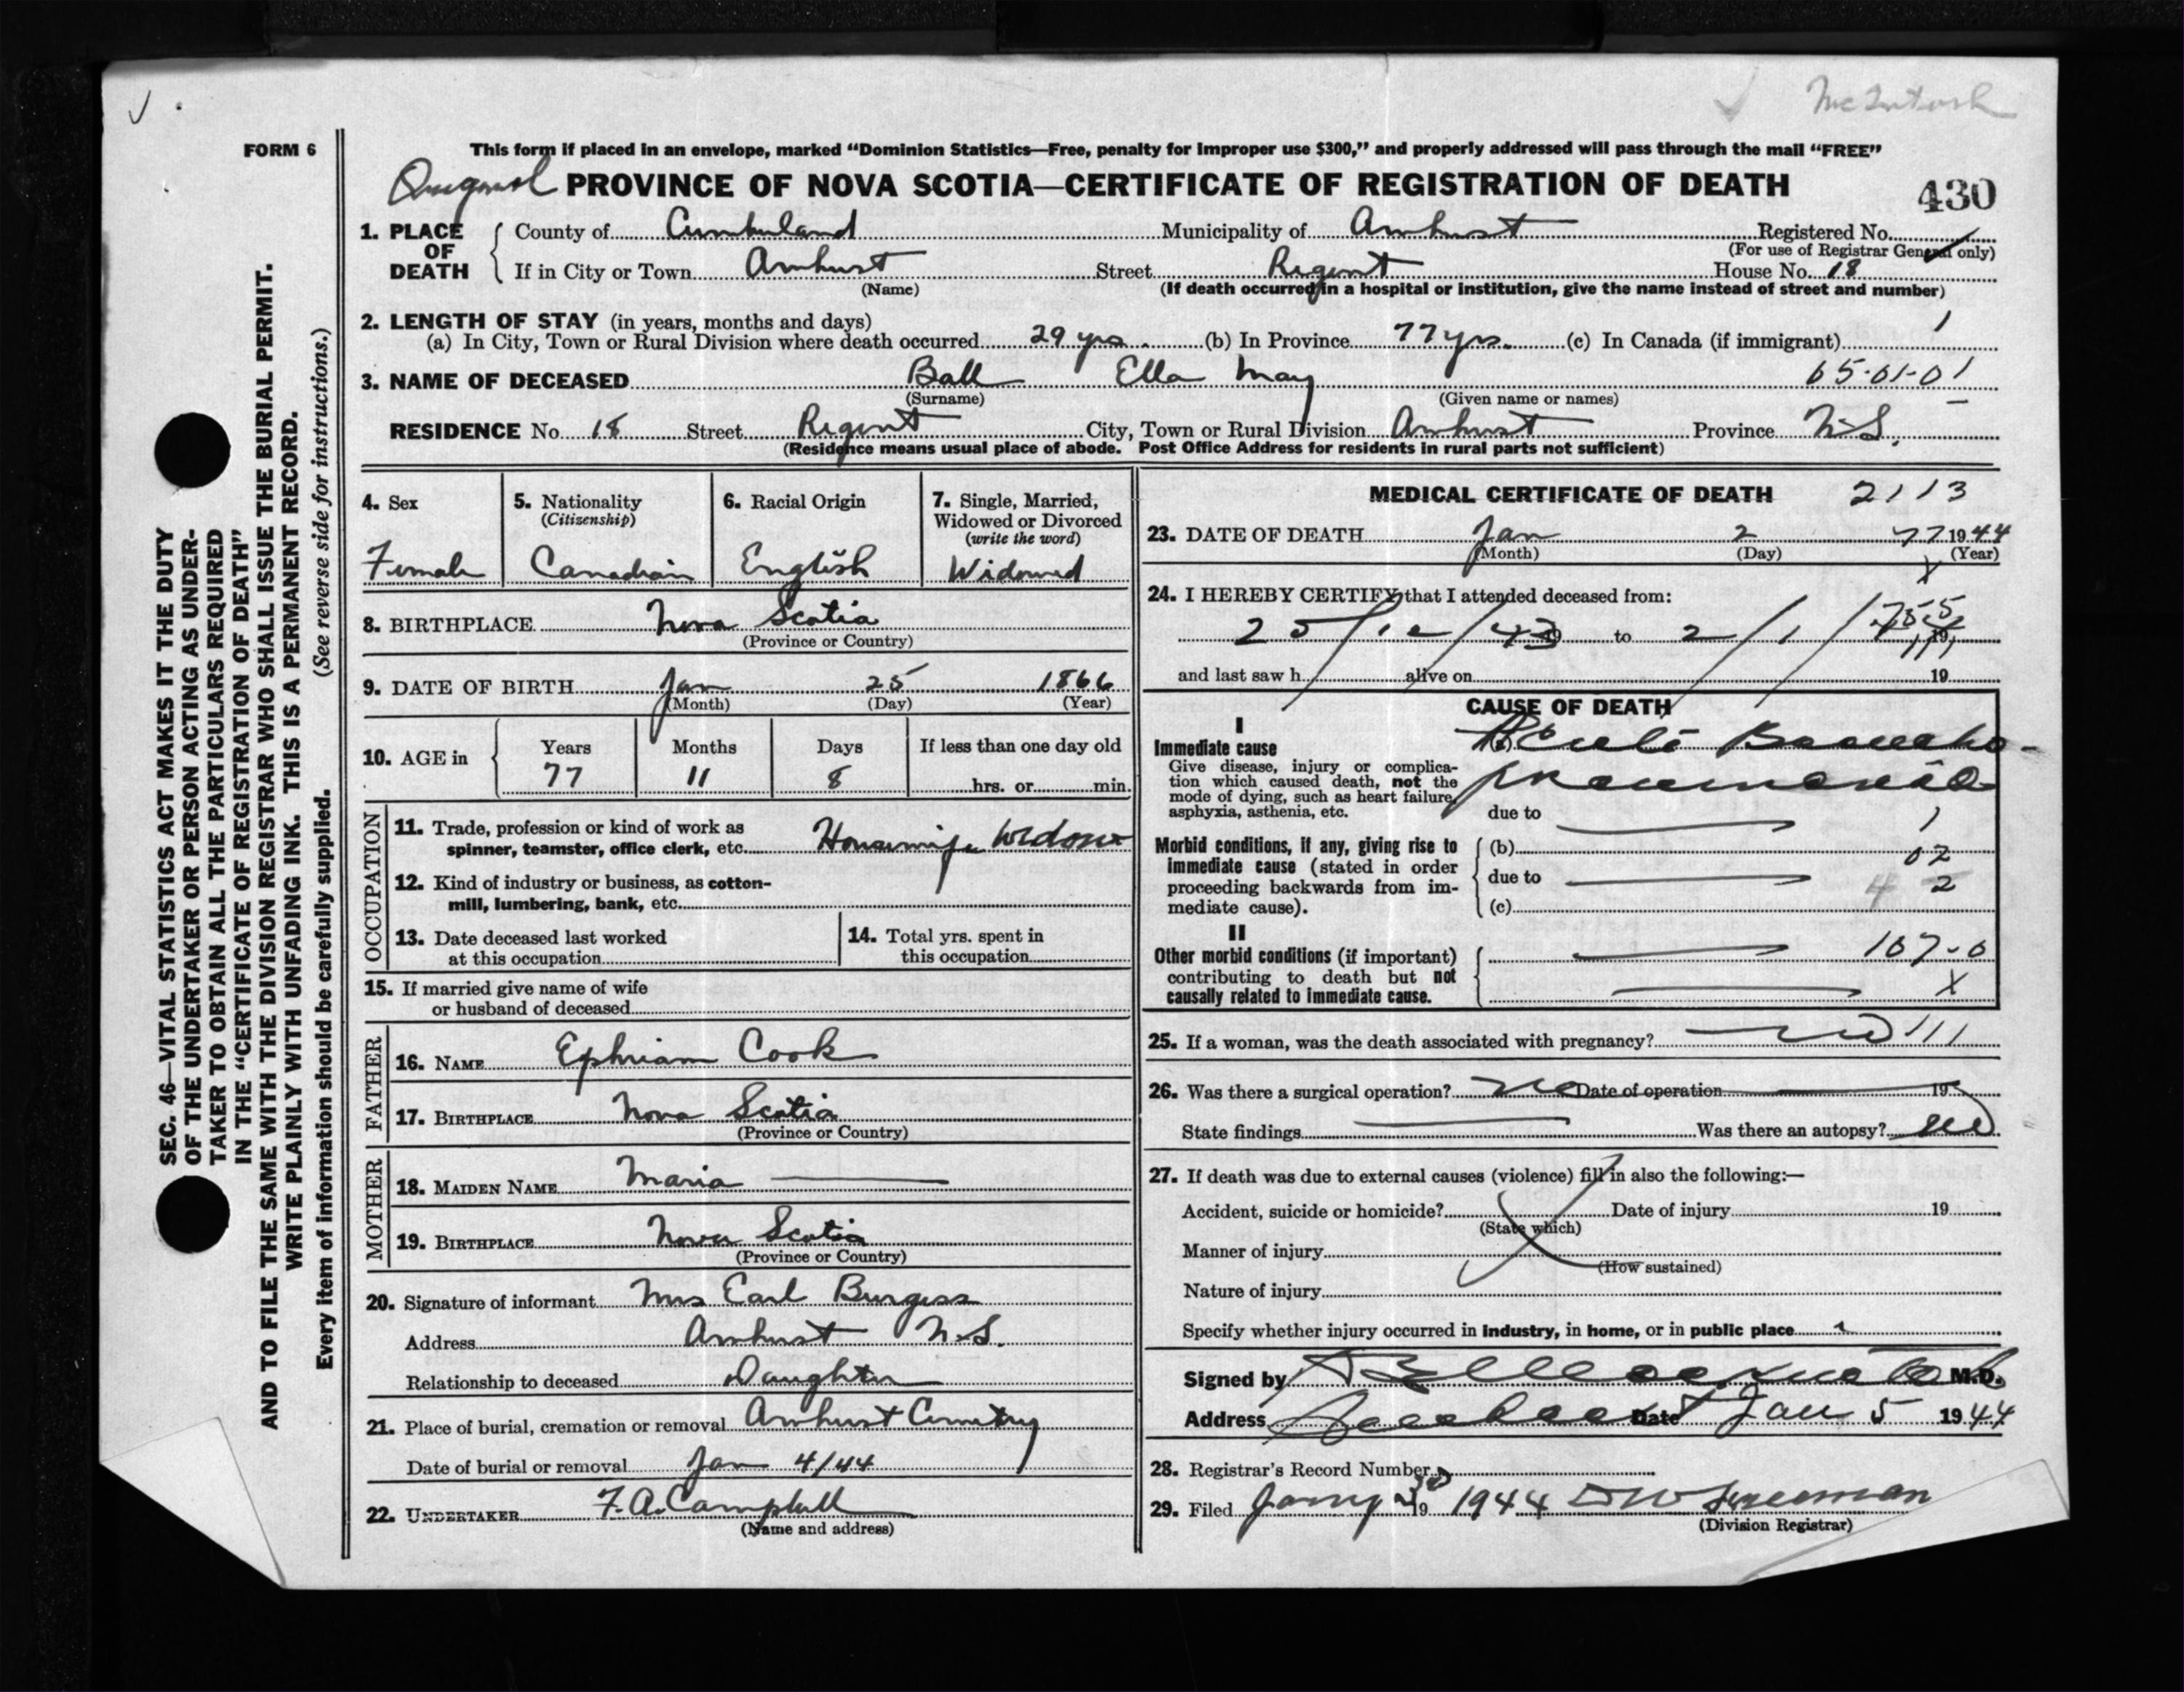 McIntosh
FORM 6
This form if placed in an envelope, marked “Dominion Statistics—Free, penalty for improper use $300,” and properly addressed will pass through the mail “FREE”
Original PROVINCE OF NOVA SCOTIA—CERTIFICATE OF REGISTRATION OF DEATH
430
1. PLACE OF DEATH
County of Cumberland Municipality of Amherst Registered No.
(For use of Registrar General only)
If in City or Town Amherst Street Regent House No. 18
(Name) (If death occurred in a hospital or institution, give the name instead of street and number)
2. LENGTH OF STAY (in years, months and days)
(a) In City, Town or Rural Division where death occurred 29 yrs. (b) In Province 77 yrs. (c) In Canada (if immigrant) 1
3. NAME OF DECEASED Ball Ella May 65-01-01
(Surname) (Given name or names)
RESIDENCE No. 18 Street Regent City, Town or Rural Division Amherst Province N.S.
(Residence means usual place of abode. Post Office Address for residents in rural parts not sufficient)
4. Sex Female
5. Nationality (Citizenship) Canadian
6. Racial Origin English
7. Single, Married, Widowed or Divorced (write the word) Widowed
8. BIRTHPLACE Nova Scotia
(Province or Country)
9. DATE OF BIRTH Jan 25 1866
(Month) (Day) (Year)
10. AGE in Years 77 Months 11 Days 8 If less than one day old
hrs. or min.
OCCUPATION
11. Trade, profession or kind of work as
spinner, teamster, office clerk, etc. Housewife Widow
12. Kind of industry or business, as cotton-
mill, lumbering, bank, etc.
13. Date deceased last worked
at this occupation
14. Total yrs. spent in
this occupation
15. If married give name of wife
or husband of deceased
FATHER
16. NAME Ephriam Cook
17. BIRTHPLACE Nova Scotia
(Province or Country)
MOTHER
18. MAIDEN NAME Maria
19. BIRTHPLACE Nova Scotia
(Province or Country)
20. Signature of informant Mrs Earl Burgess
Address Amherst N.S.
Relationship to deceased Daughter
21. Place of burial, cremation or removal Amherst Cemetry
Date of burial or removal Jan 4/44
22. UNDERTAKER F. A. Campbell
(Name and address)
MEDICAL CERTIFICATE OF DEATH 2113
23. DATE OF DEATH Jan 2 77 1944
(Month) (Day) (Year)
24. I HEREBY CERTIFY that I attended deceased from:
25/12/43 19 to 2/1/ 19
and last saw h alive on 19
CAUSE OF DEATH
I
Immediate cause
Give disease, injury or complica-
tion which caused death, not the
mode of dying, such as heart failure,
asphyxia, asthenia, etc.
Acute Broncho-
pneumonia
due to
Morbid conditions, if any, giving rise to
immediate cause (stated in order
proceeding backwards from im-
mediate cause).
(b) 02
due to
(c)
II
Other morbid conditions (if important)
contributing to death but not
causally related to immediate cause.
107-0
X
25. If a woman, was the death associated with pregnancy? no 111
26. Was there a surgical operation? no Date of operation 19
State findings Was there an autopsy? no
27. If death was due to external causes (violence) fill in also the following:—
Accident, suicide or homicide? Date of injury 19
(State which)
Manner of injury
(How sustained)
Nature of injury
Specify whether injury occurred in industry, in home, or in public place
Signed by M.D.
Address Date Jan 5 1944
28. Registrar's Record Number
29. Filed 19 1944
(Division Registrar)
SEC. 46—VITAL STATISTICS ACT MAKES IT THE DUTY
OF THE UNDERTAKER OR PERSON ACTING AS UNDER-
TAKER TO OBTAIN ALL THE PARTICULARS REQUIRED
IN THE “CERTIFICATE OF REGISTRATION OF DEATH”
AND TO FILE THE SAME WITH THE DIVISION REGISTRAR WHO SHALL ISSUE THE BURIAL PERMIT.
WRITE PLAINLY WITH UNFADING INK. THIS IS A PERMANENT RECORD.
Every item of information should be carefully supplied. (See reverse side for instructions.)